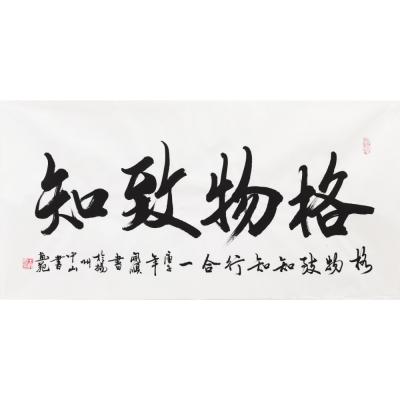 格物致知
格物致知知行合一 庚子年 書於揚州中山書